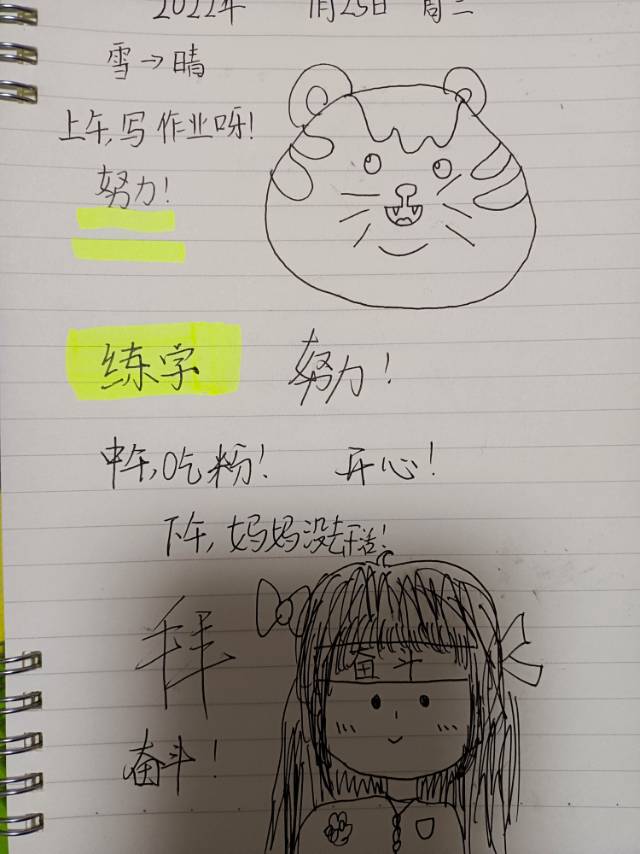 2022年 1月25日 周二
雪→晴
上午,写作业呀!
努力!
练字 努力!
中午,吃粉! 开心!
下午,妈妈没去干活!
拜
奋斗
奋斗!